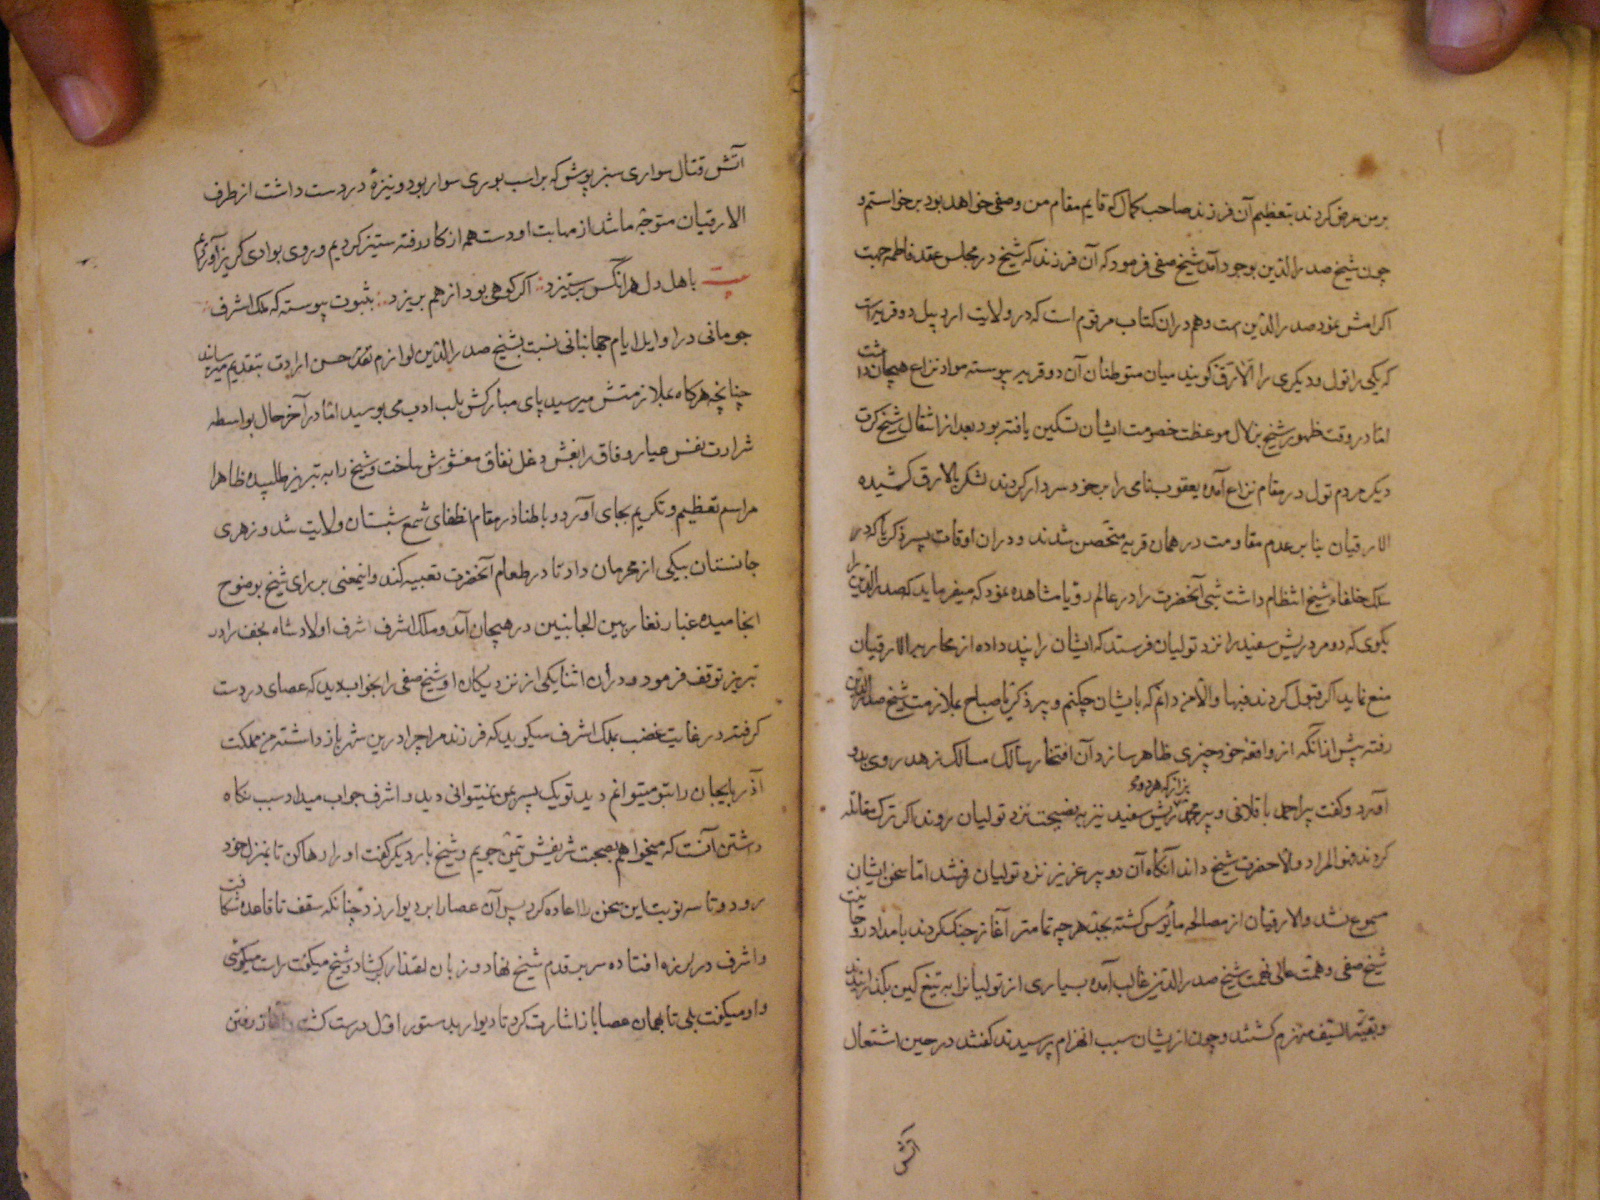 بر من عرض کردند بتعظیم آن فرزند صاحب کمال که قایم مقام من وصفی خواهد بود برخواستم و
چون شیخ صدرالدین بوجود آمد شیخ صفی فرمود که آن فرزند که شیخ در مجلس عقد فاطمه جهت
اکرامش نمود صدرالدین است و هم در آن کتاب مرقوم است که در ولایت اردبیل دو قریه است
که یکی را تول و دیکری را الارق کویند میان متوطنان آن دو قریه پیوسته مواد نزاع هیجان داشت
اما در وقت ظهور شیخ بزلال موعظت خصومت ایشان تسکین یافته بود بعد از انتقال شیخ کرت
دیکر مردم تول در مقام نزاع آمده یعقوب نامی را بر خود سردار کردند لشکر بالارق کشیده
الارقیان بنا بر عدم مقاومت در همان قریه متحصن شدند و در آن اوقات پیر ذکریا که در
سلک خلفاء شیخ انتظام داشت شبی آنحضرت را در عالم رؤیا مشاهده نمود که میفرماید که صدرالدین را
بکوی که دو مرد ریش سفید را نزد تولیان فرستد که ایشان را پند داده از محاربه الارقیان
منع نماید اکر قبول کردند فبها والا من دانم که با ایشان چکنم و پیر ذکریا صباح بملازمت شیخ صدرالدین
رفته پیش از آنکه از واقعه خود چیزی ظاهر سازد آن افتخار سالک مسالک زهد روی بدو
آورد و کفت پیر احمد با قلانی و پیر محمد براز که هر دو ریش سفیدند نیز به نصیحت نزد تولیان روند اکر ترک مقاتله
کردند فهو المراد والا حضرت شیخ داند آنکاه آن دو پیر عزیز نزد تولیان رفتند اما سخن ایشان
مسموع نشد و الارقیان از مصالحه مأیوس کشته بجد هر چه تمامتر آغاز جنک کردند بامداد روحانیت
شیخ صفی و همت عالی نهمت شیخ صدرالدین غالب آمده بسیاری از تولیانرا بتیغ کین بکذرانیدند
و بقیة السیف منهزم کشتند و چون از ایشان سبب انهزام پرسیدند کفتند در حین اشتعال
آتش
آتش قتال سواری سبز پوش که بر اسب بوری سوار بود و نیزهٔ در دست داشت از طرف
الارقیان متوجه ما شد از مهابت او دست همه از کار رفته ستیز کردیم و روی بوادی کریز آوردیم
بیت با اهل دل هر آنکس بستیزد اکر کوهی بود از هم بریزد بثبوت پیوسته که ملک اشرف
جومانی در اوایل ایام جهانبانی نسبت بشیخ صدرالدین لوازم تفقد حسن ارادت بتقدیم میرسانید
چنانچه هرکاه بملازمتش میرسید پای مبارکش بلب ادب می بوسید اما در آخر حال بواسطه
شرارت نفس عیار وفاق را بغش دغل نفاق مغشوش ساخت و شیخ را به تبریز طلبیده ظاهرا
مراسم تعظیم و تکریم بجای آورد و باطنا در مقام انطفای شمع شبستان ولایت شد و زهری
جانستان بیکی از محرمان داد تا در طعام آنحضرت تعبیه کند و اینمعنی بر رای شیخ بوضوح
انجامیده غبار نغار بین الجانبین در هیجان آمد و ملک اشرف اشرف اولاد شاه نجف را در
تبریز توقف فرمود و در آن اثنا یکی از نزدیکان او شیخ صفی را بخواب دید که عصای در دست
کرفته در غایت غضب بملک اشرف میکوید که فرزند مرا چرا درین شهر باز داشته من مملکت
آذربایجان را بتو میتوانم دید تو یک پسر بمن نمیتوانی دید و اشرف جواب میداد سبب نکاه
داشتن آنست که میخواهم بصحبت شریفش تیمن جویم و شیخ بار دیکر کفت او را رها کن تا بمنزل خود
رود و تا سه نوبت این سخن را اعاده کرد پس آن عصا را بر دیوار زد چنانکه سقف تا قاعده شکافت
و اشرف در لرزه افتاده سر بر قدم شیخ نهاد و زبان اعتذار بر کشاد و شیخ میکفت راست میکوئی
و او میکفت بلی تا بهمان عصا باز اشارت کرد تا دیوار بدستور اول درست کشت رفتن